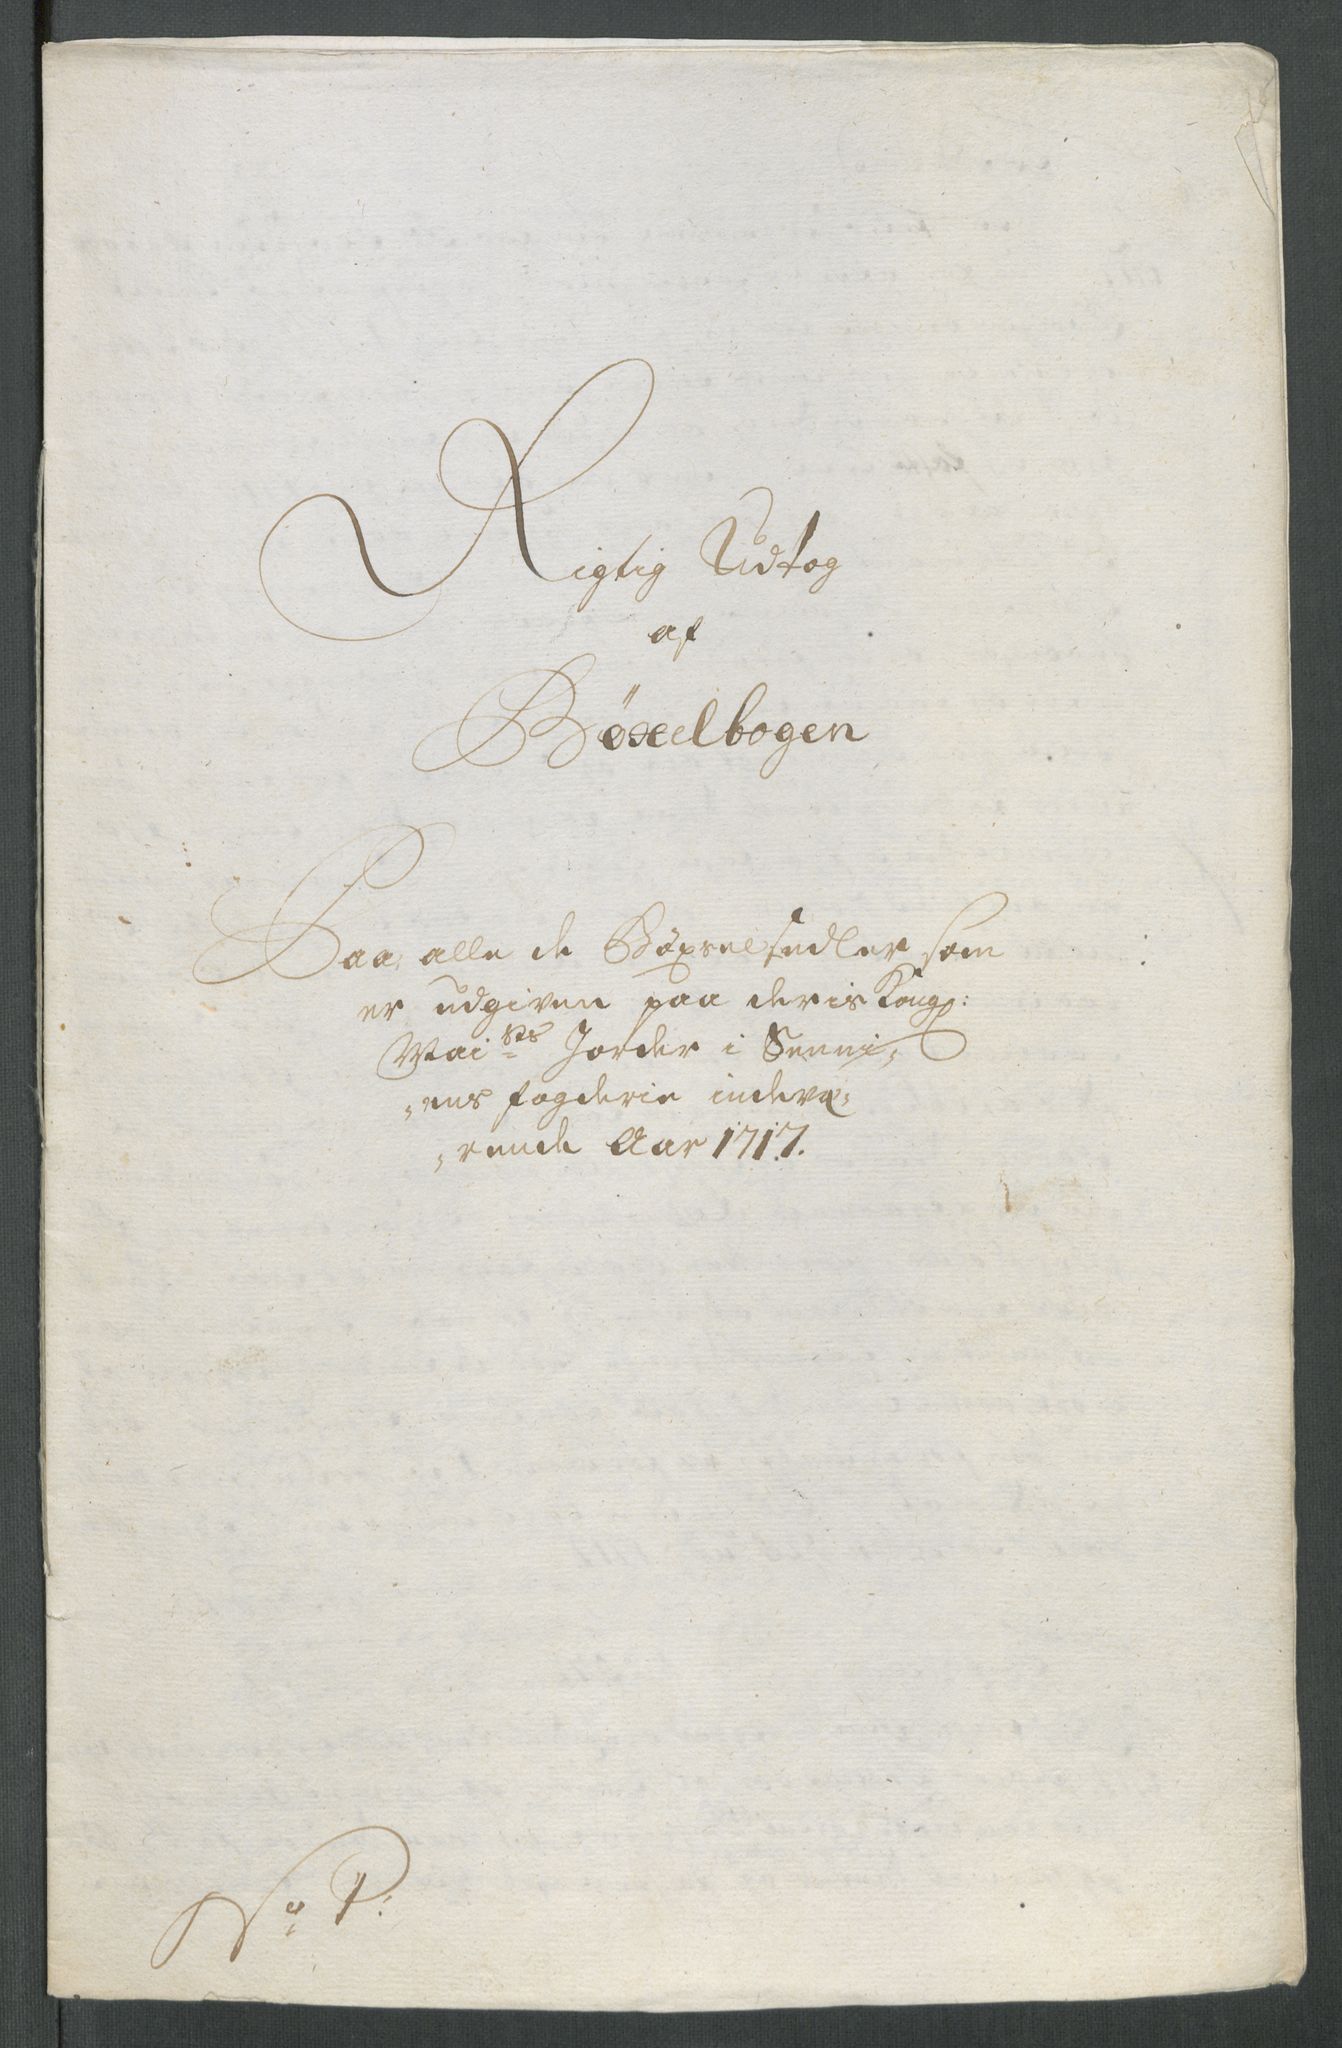 Rigtig Udtog
af
Bøxelbogen
Paa alle de Bøxselsedler som
er udgiven paa deris Kongl:
Mai.sts Jorder i Senni,
,ens fogderie indevæ,
,rende Aar 1717.
No P: